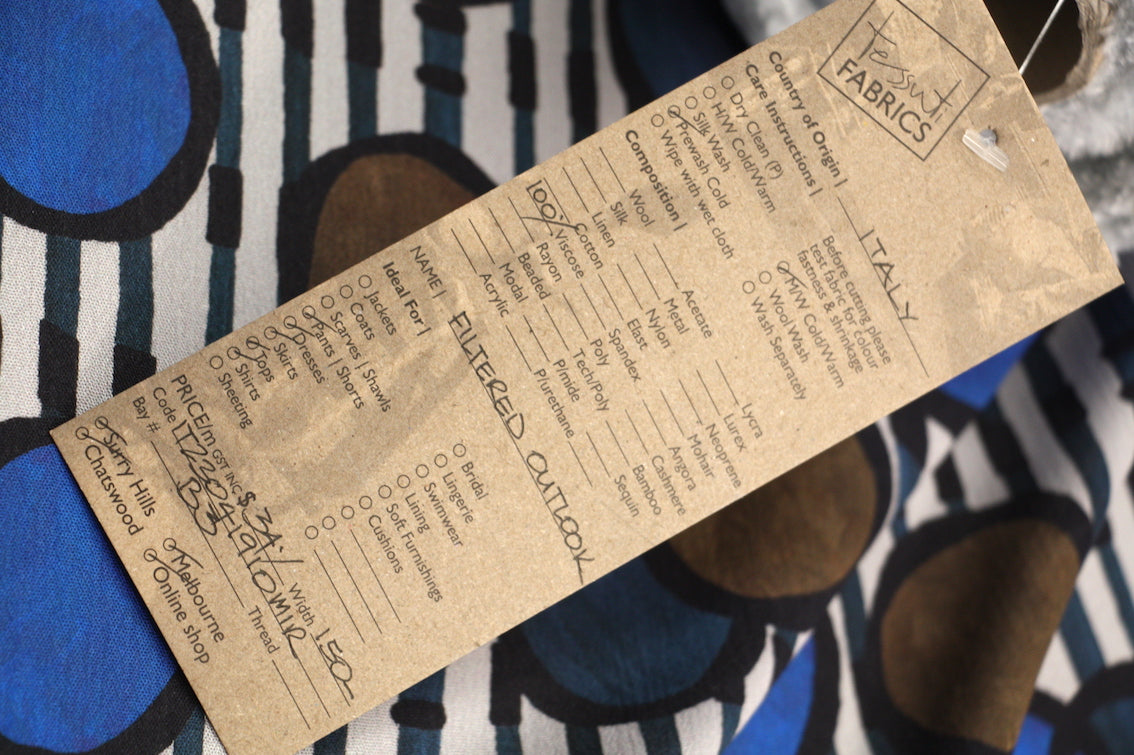 tessuti
FABRICS
Country of Origin | ITALY
Care Instructions |
Dry Clean (P)
H/W Cold/Warm
Silk Wash
Prewash Cold
Wipe with wet cloth
Before cutting please
test fabric for colour
fastness & shrinkage
M/W Cold/Warm
Wool Wash
Wash Separately
Composition |
Wool
Silk
Linen
Cotton
100% Viscose
Rayon
Beaded
Modal
Acrylic
Acetate
Metal
Nylon
Elast
Spandex
Poly
Tech/Poly
P/mide
P/urethane
Lycra
Lurex
Neoprene
Mohair
Angora
Cashmere
Bamboo
Sequin
NAME | FILTERED OUTLOOK
Ideal For |
Jackets
Coats
Scarves | Shawls
Pants | Shorts
Dresses
Skirts
Tops
Shirts
Sheeting
Bridal
Lingerie
Swimwear
Lining
Soft Furnishings
Cushions
PRICE/m GST INC $34/ Width 150
Code
Bay # B3 Thread
Surry Hills
Chatswood
Melbourne
Online shop